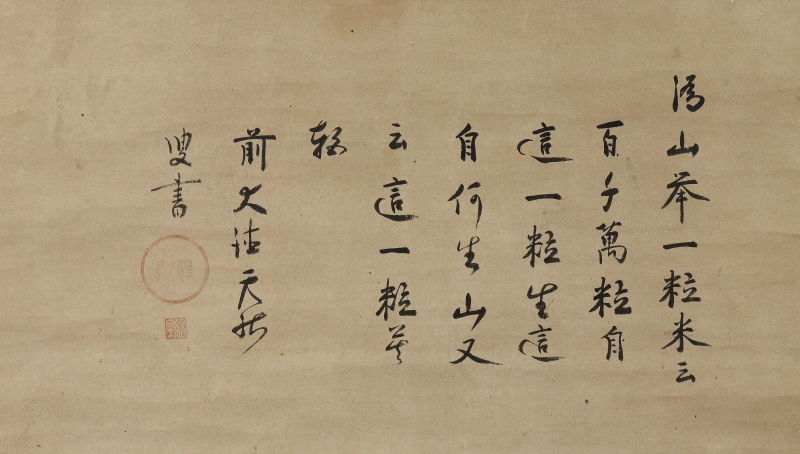 溈山举一粒米云
百千萬粒自
這一粒生這
自何生山又
云這一粒莫
軽
前大天
叟書